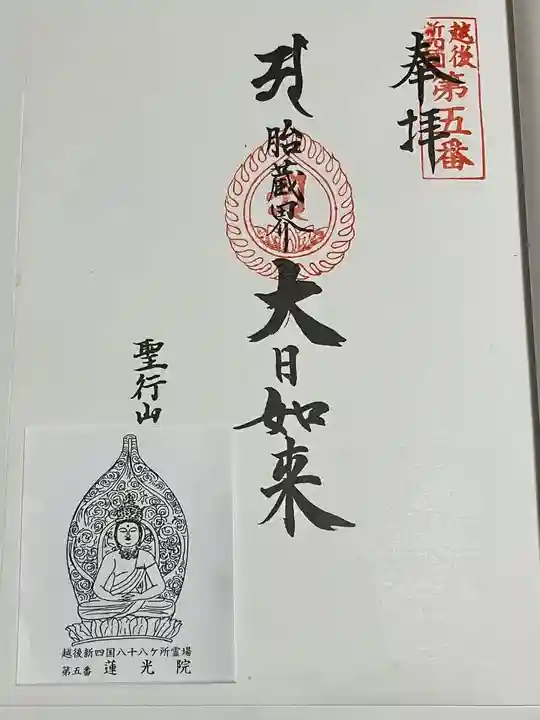 越後
新四国
第五番
奉拝
胎蔵界
大日如来
聖行山
越後新四国八十八ケ所霊場
第五番 蓮光院